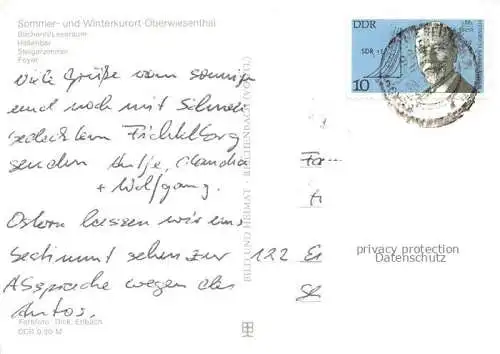 Sommer- und Winterkurort Oberwiesenthal
Bücherei/Leseraum
Hallenbar
Steigerzimmer
Foyer
Viele Grüße vom sonnigen
und noch mit Schnee
bedecktem Fichtelberg
senden Antje, Claudia
+ Wolfgang.
Ostern lassen wir uns
bestimmt sehen zur
Absprache wegen des
Autos.
Farbfoto: Dick, Erlbach
DDR 0,20 M
BILD UND HEIMAT · REICHENBACH (VOGTL)
DDR
SDR
10
122
privacy protection
Datenschutz